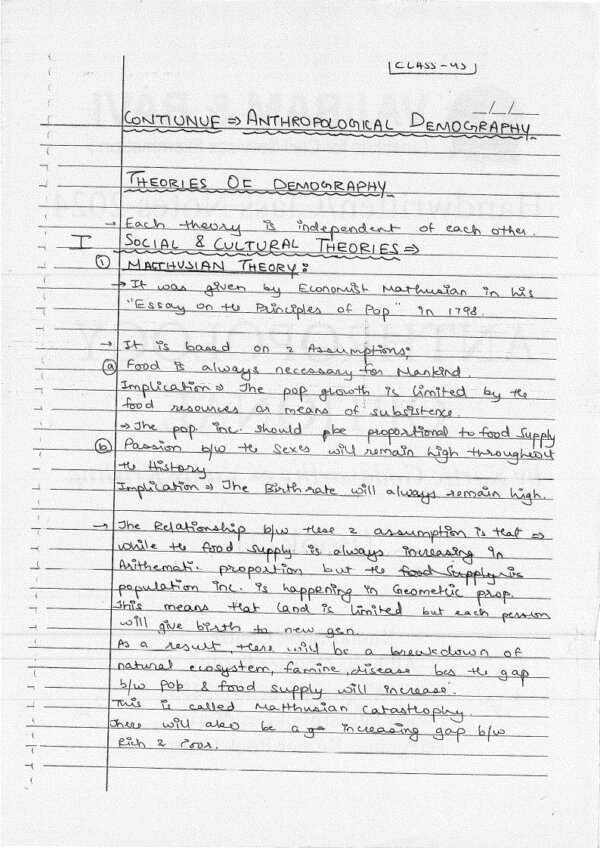 CLASS-43
_/_/_
CONTIUNUE ⇒ ANTHROPOLOGICAL DEMOGRAPHY
THEORIES OF DEMOGRAPHY
→ Each theory is independent of each other.
I SOCIAL & CULTURAL THEORIES ⇒
① MALTHUSIAN THEORY:
→ It was given by Economist Malthusian in his
"Essay on the Principles of Pop" in 1798.
→ It is based on 2 Assumptions:
ⓐ Food is always necessary for Mankind.
Implication ⇒ The pop growth is limited by the
food resources or means of subsistence.
→ The pop inc. should be proportional to food supply
ⓑ Passion b/w the sexes will remain high throughout
the History
Implication ⇒ The Birth rate will always remain high.
→ The Relationship b/w these 2 assumption is that ⇒
while the food supply is always increasing in
Arithematic proportion but the food supply is
population inc. is happening in Geometic prop.
This means that land is limited but each person
will give birth to new gen.
As a result, there will be a breakedown of
natural ecosystem, famine, disease bcs the gap
b/w pop & food supply will increase.
This is called Malthusian Catastrophy.
There will also be a ga increasing gap b/w
Rich & Poor.